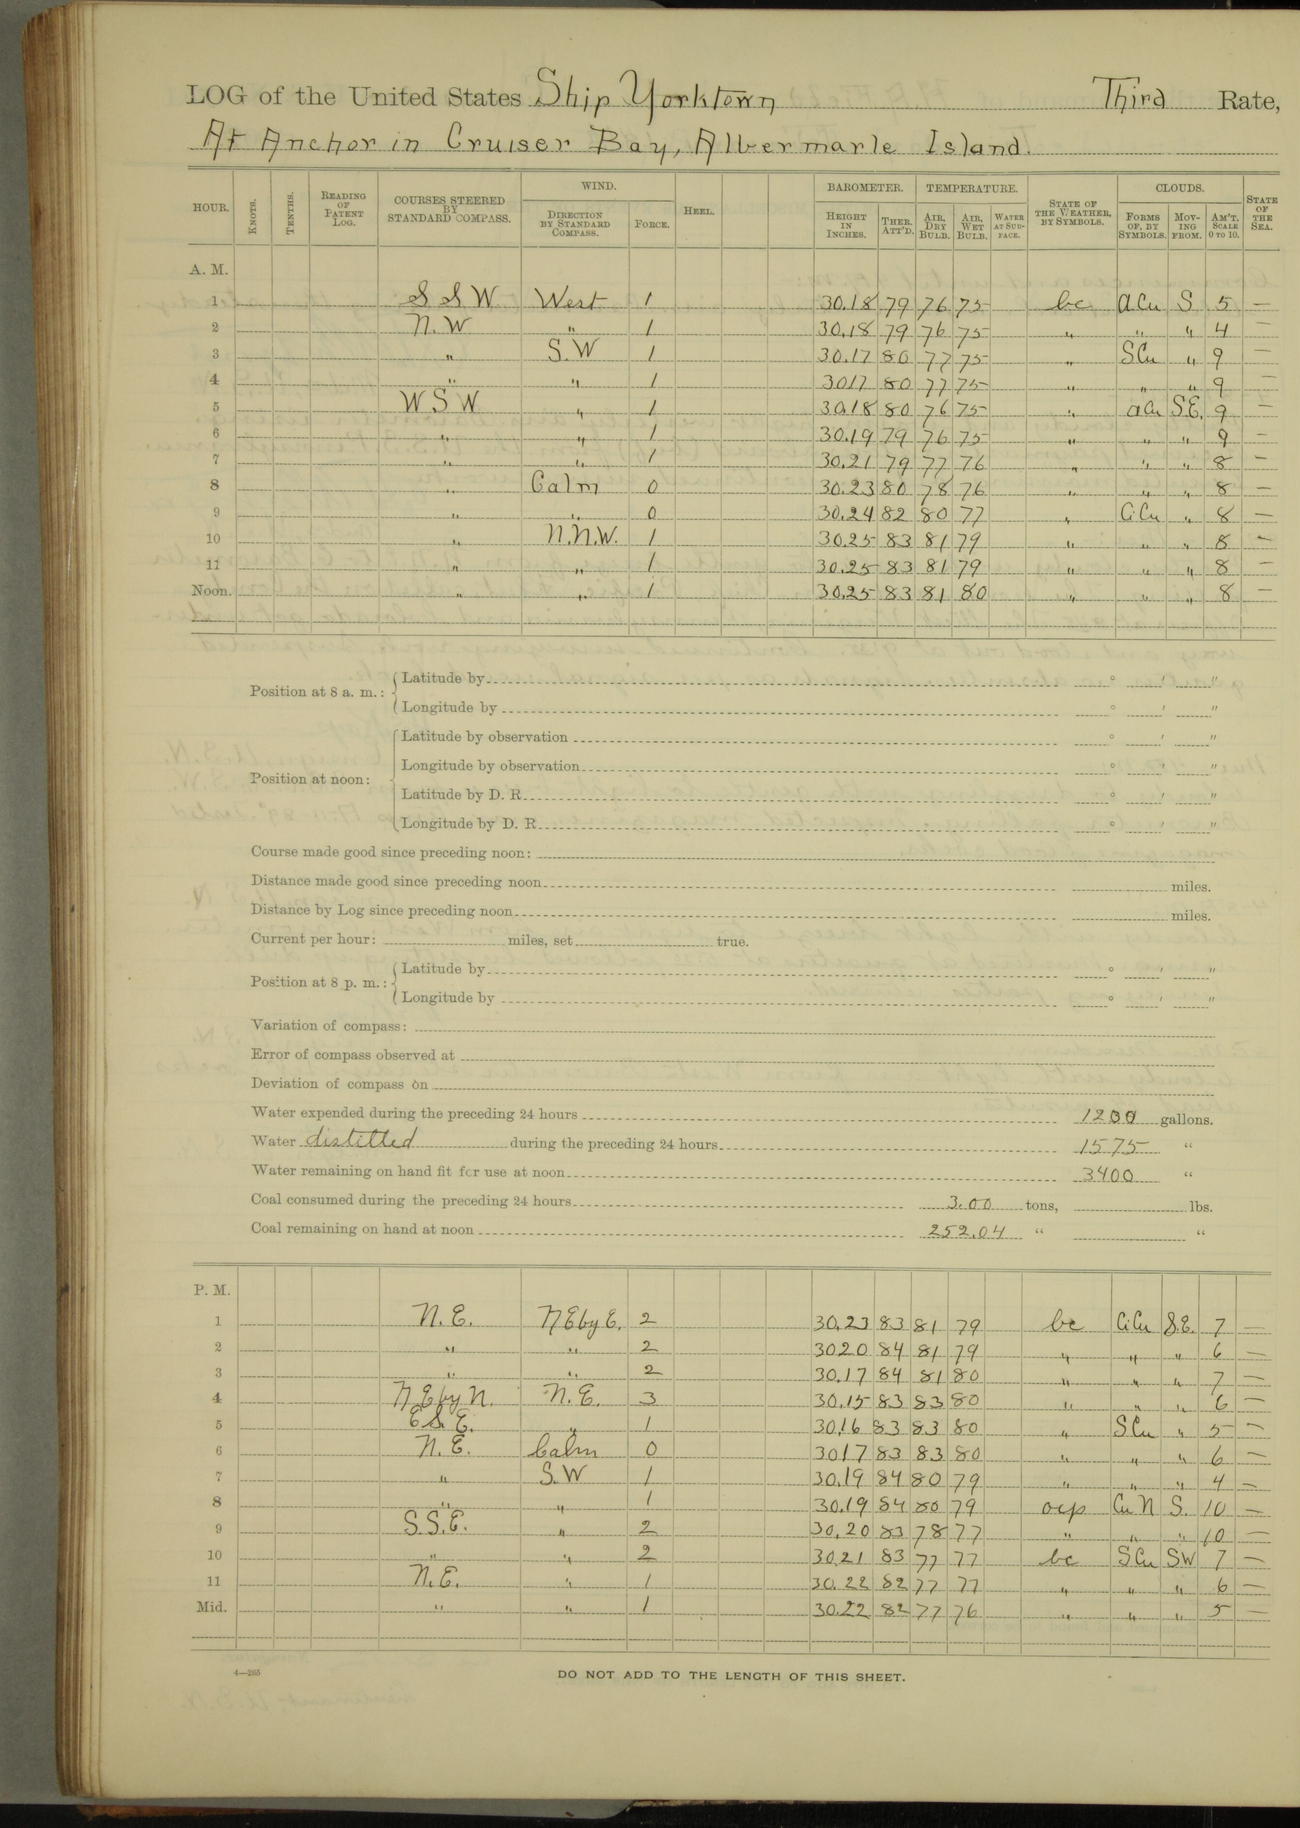 LOG of the United States Ship Yorktown Third Rate,
At Anchor in Cruiser Bay, Albermarle Island.
HOUR. KNOTS. TENTHS. READING OF PATENT LOG. COURSES STEERED BY STANDARD COMPASS. WIND. DIRECTION BY STANDARD COMPASS. FORCE. HEEL. BAROMETER. HEIGHT IN INCHES. THER. ATT'D. TEMPERATURE. AIR, DRY BULB. AIR, WET BULB. WATER AT SURFACE. STATE OF THE WEATHER, BY SYMBOLS. CLOUDS. FORMS OF, BY SYMBOLS. MOVING FROM. AM'T. SCALE 0 TO 10. STATE OF THE SEA.
A. M.
1 S S W West 1 30.18 79 76 75 bc aCu S 5 —
2 N.W " 1 30.18 79 76 75 " " " 4 —
3 " S.W 1 30.17 80 77 75 " SCu " 9 —
4 " " 1 3017 80 77 75 " " " 9 —
5 W S W " 1 30.18 80 76 75 " aCu S.E. 9 —
6 " " 1 30.19 79 76 75 " " " 9 —
7 " " 1 30.21 79 77 76 " " " 8 —
8 " Calm 0 30.23 80 78 76 " " " 8 —
9 " " 0 30.24 82 80 77 " CiCu " 8 —
10 " N.N.W. 1 30.25 83 81 79 " " " 8 —
11 " " 1 30.25 83 81 79 " " " 8 —
Noon. " " 1 30.25 83 81 80 " " " 8 —
Position at 8 a. m.: Latitude by ° ′ ″
Longitude by ° ′ ″
Position at noon: Latitude by observation ° ′ ″
Longitude by observation ° ′ ″
Latitude by D. R. ° ′ ″
Longitude by D. R. ° ′ ″
Course made good since preceding noon:
Distance made good since preceding noon miles.
Distance by Log since preceding noon miles.
Current per hour: miles, set true.
Position at 8 p. m.: Latitude by ° ′ ″
Longitude by ° ′ ″
Variation of compass:
Error of compass observed at
Deviation of compass on
Water expended during the preceding 24 hours 1200 gallons.
Water distilled during the preceding 24 hours 1575 "
Water remaining on hand fit for use at noon 3400 "
Coal consumed during the preceding 24 hours 3.00 tons, lbs.
Coal remaining on hand at noon 252.04 " "
P. M.
1 N.E. NEbyE. 2 30.23 83 81 79 bc CiCu S.E. 7 —
2 " " 2 3020 84 81 79 " " " 6 —
3 " " 2 30.17 84 81 80 " " " 7 —
4 NEbyN. N.E. 3 30.15 83 83 80 " " " 6 —
5 E S. E. " 1 30.16 83 83 80 " SCu " 5 —
6 N.E. Calm 0 3017 83 83 80 " " " 6 —
7 " S.W 1 30.19 84 80 79 " " " 4 —
8 " " 1 30.19 84 80 79 ocp CuN S. 10 —
9 S.S.E. " 2 30.20 83 78 77 " " " 10 —
10 " " 2 30.21 83 77 77 bc SCu SW 7 —
11 N.E. " 1 30.22 82 77 77 " " " 6 —
Mid. " " 1 30.22 82 77 76 " " " 5 —
4—265
DO NOT ADD TO THE LENGTH OF THIS SHEET.